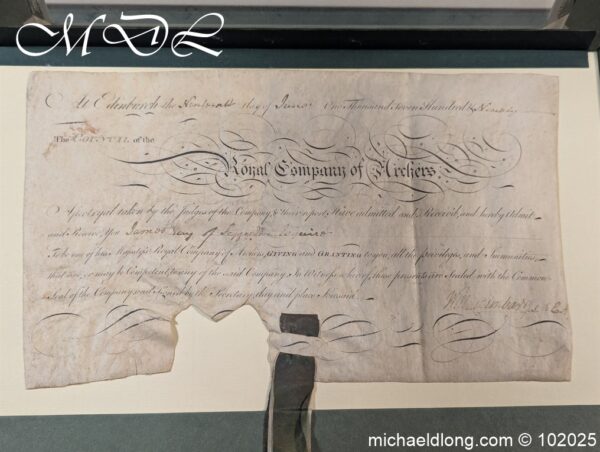 MDL
At Edinburgh the day of June One Thousand Seven Hundred & Ninety
The COUNCIL of the
Royal Company of Archers,
A fter tryal taken by the Judges of the Company, & thereupon Have admitted and Received, and hereby Admit
and Receive You James of Esquire
To be one of his Majesty's Royal Company of Archers, GIVING AND GRANTING to you, all the privileges, and Immunities
that are, or may be Competent, to any of the said Company. In Witness whereof, these presents are Sealed with the Common
Seal of the Company, and Signed by the Secretary, day and place foresaid.
michaeldlong.com © 102025